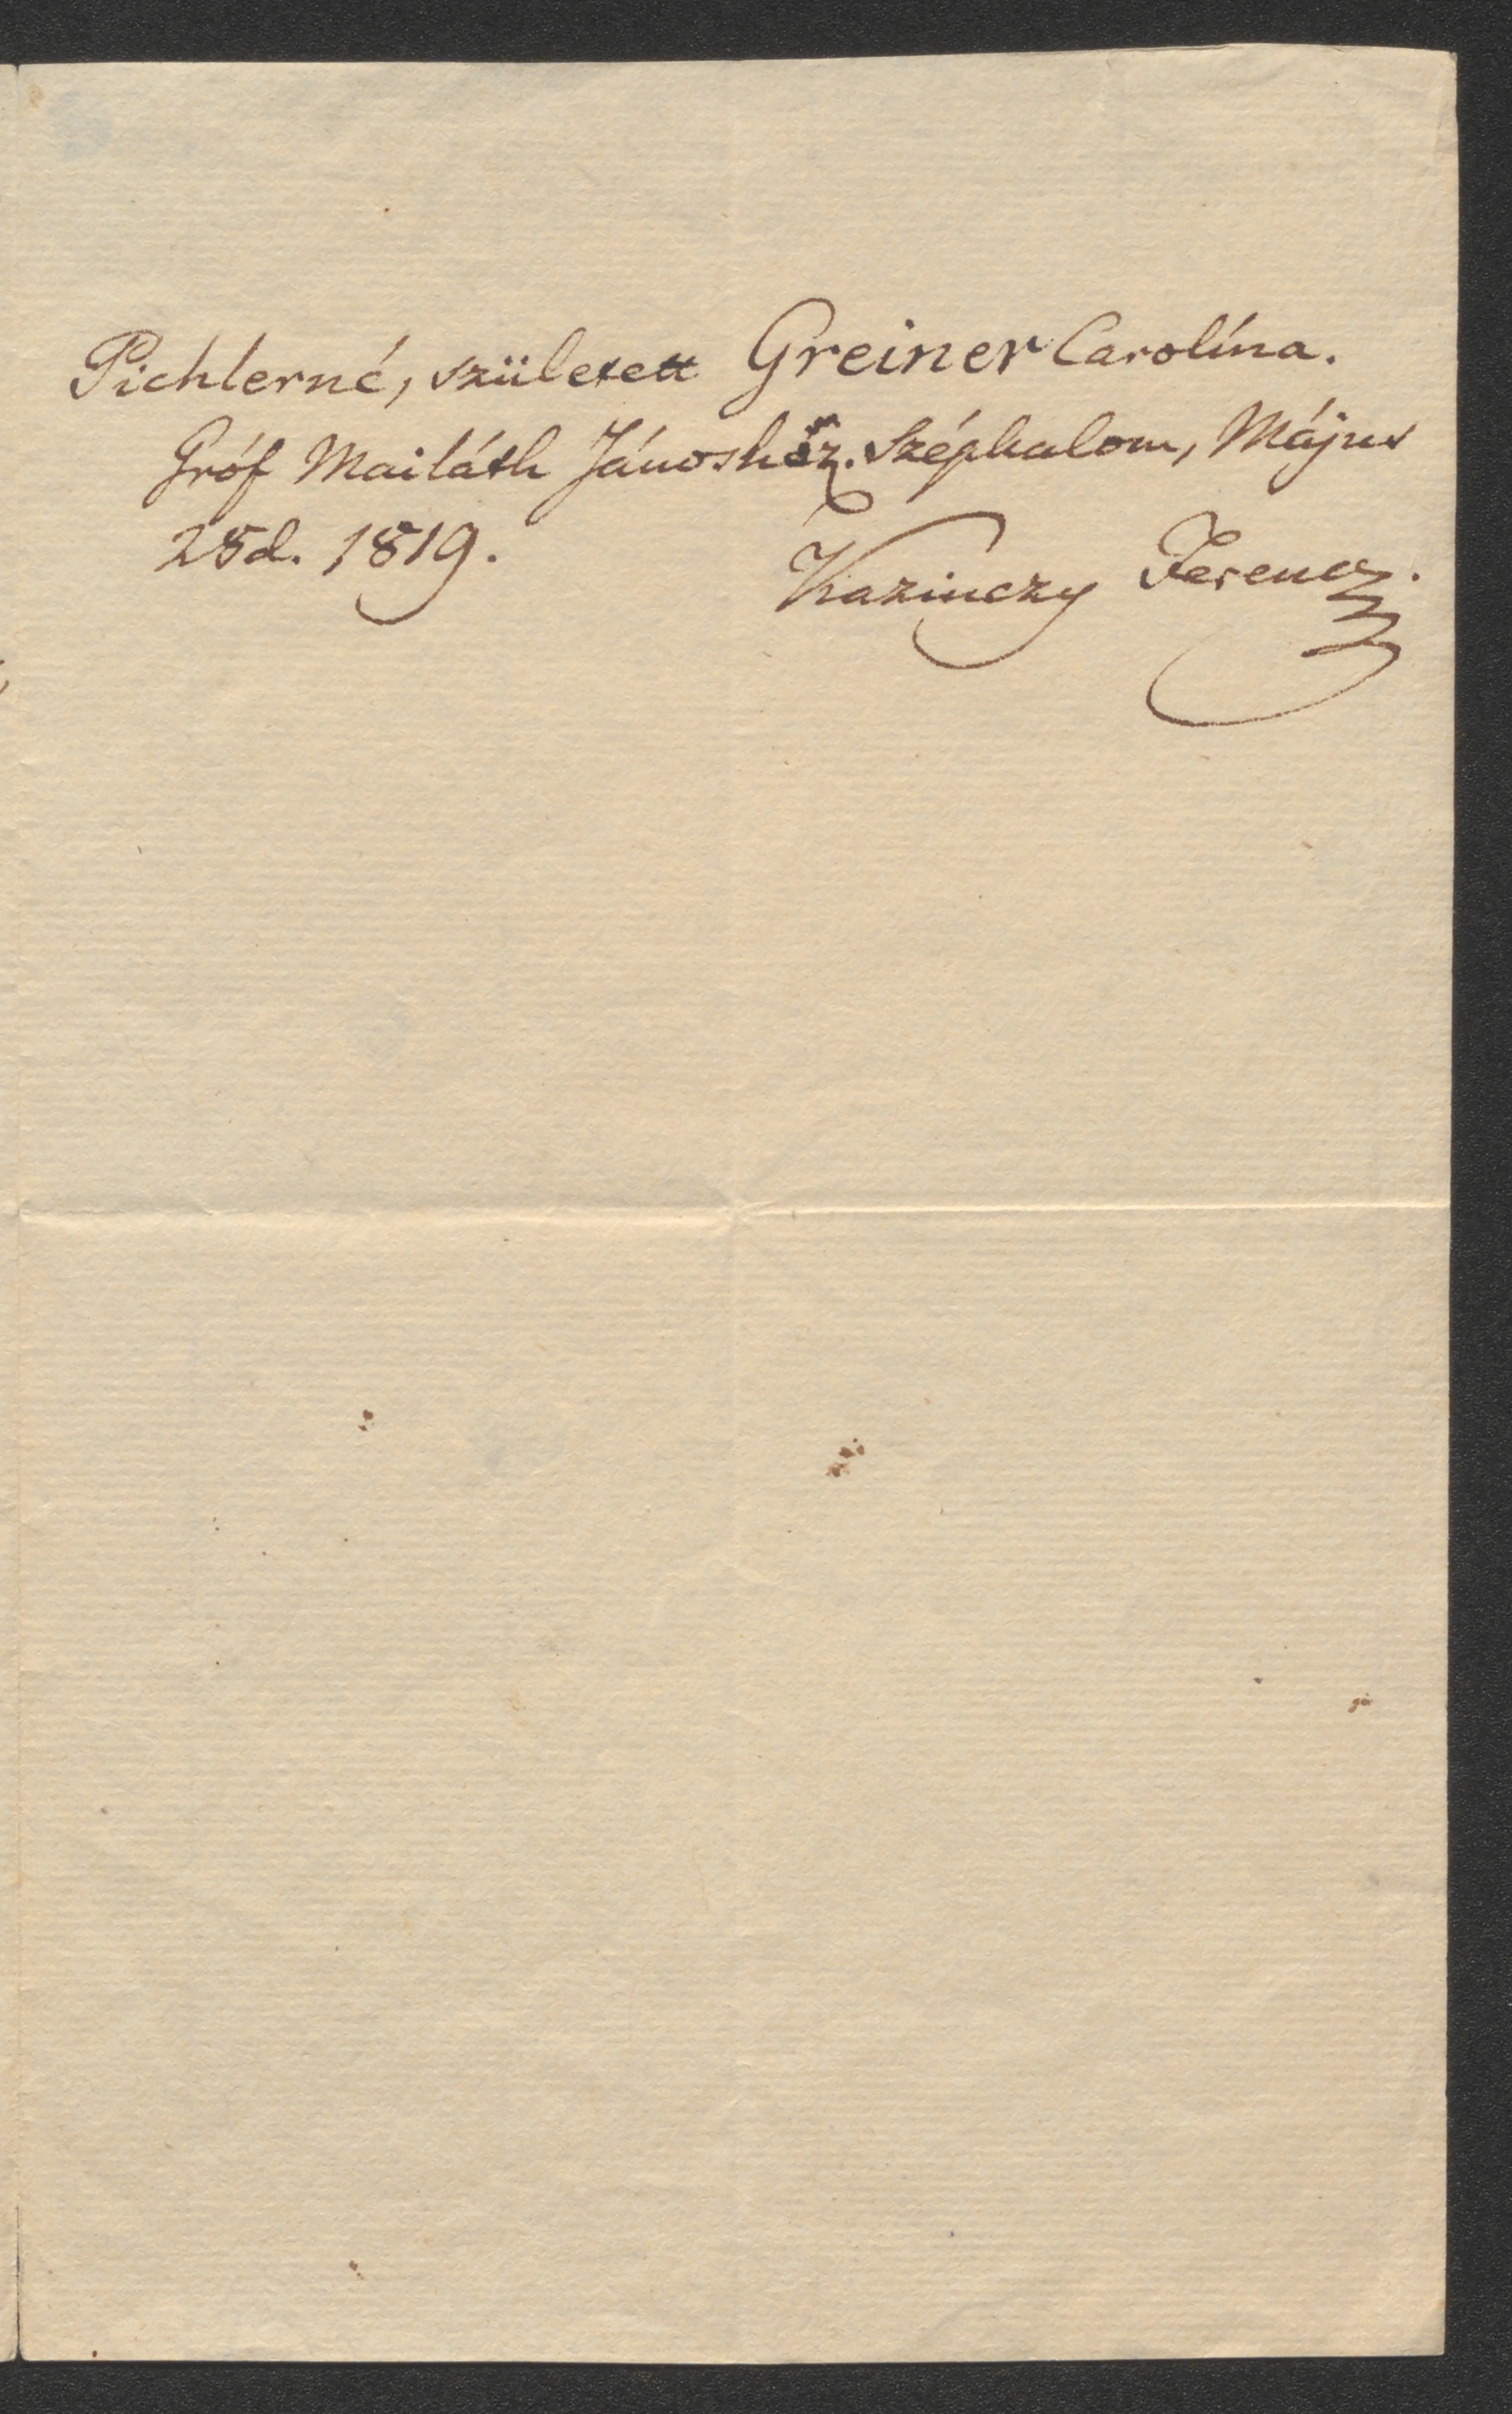 Pichlerné, született Greiner Carolína.
Gróf Mailáth Jánoshoz. Széphalom, Május
25d. 1819.
Kazinczy Ferencz.